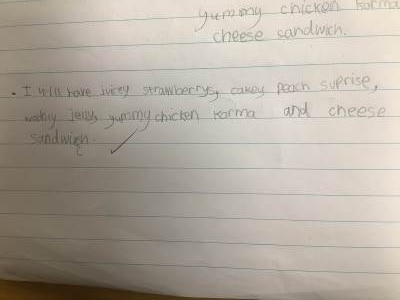 yummy chicken korma
cheese sandwich.
• I will have juicy strawberrys, cakey peach suprise,
jelly, yummy chicken korma and cheese
sandwich.